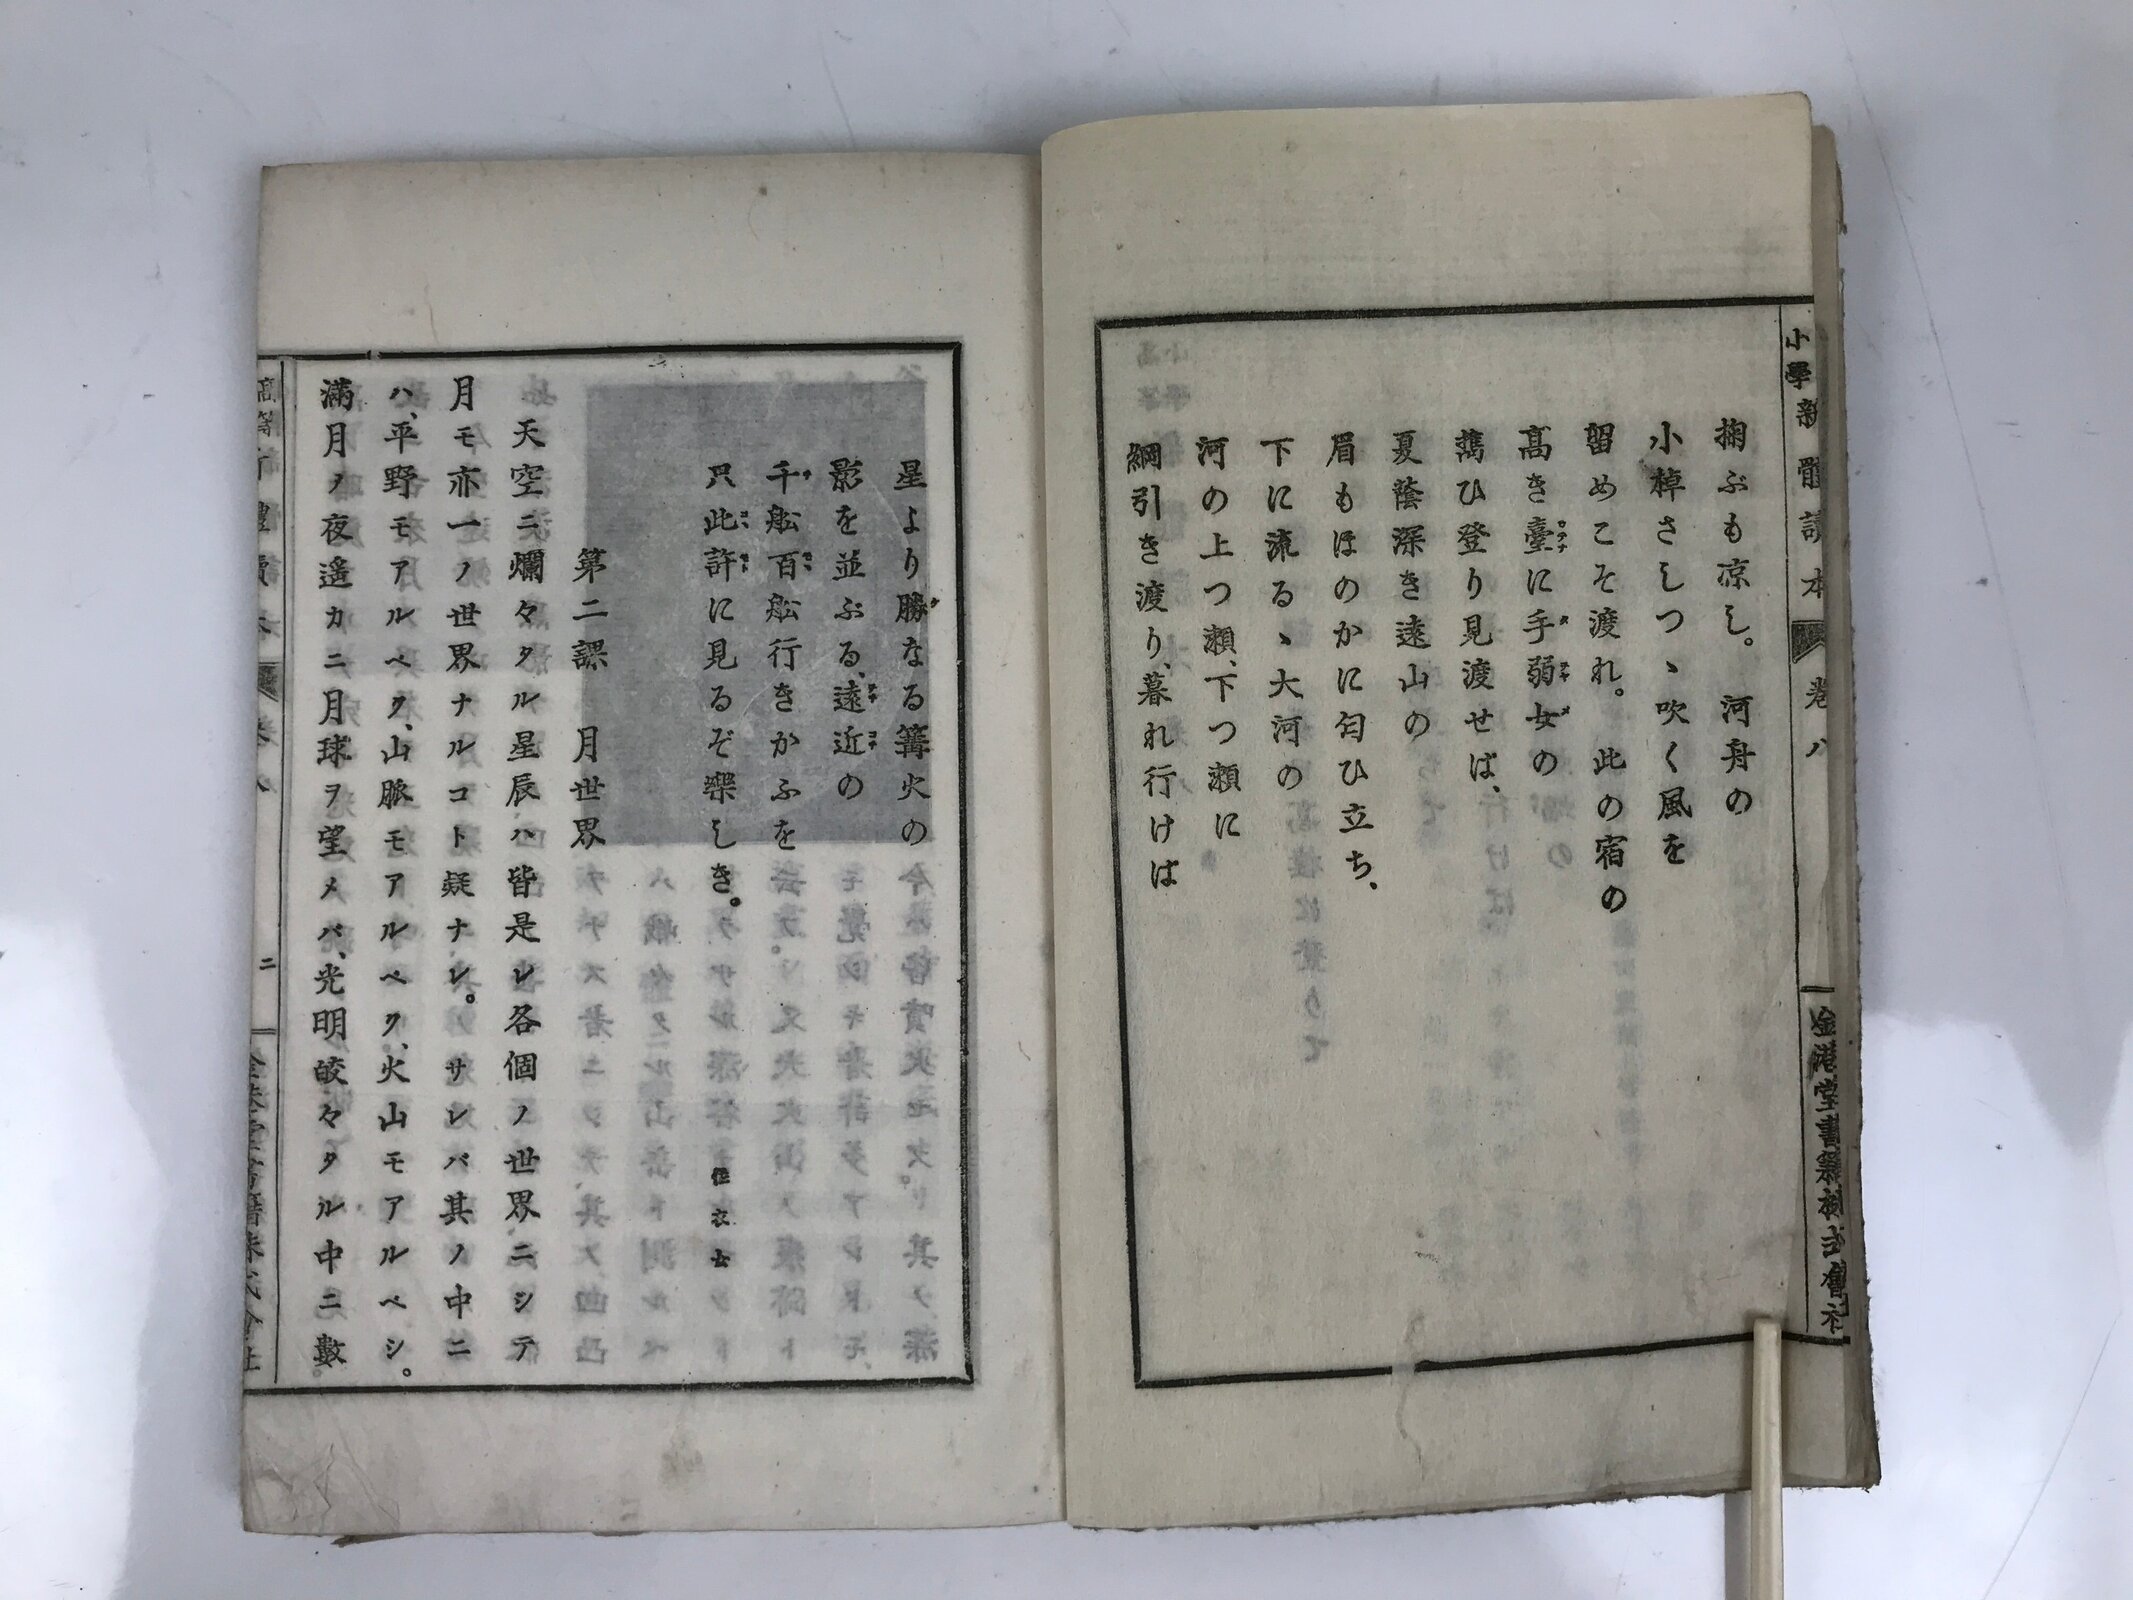 小學新體讀本 卷八 金港堂書籍株式會社
掬ぶも凉し。 河舟の
小棹さしつゝ吹く風を
留めこそ渡れ。 此の宿の
高き臺に手弱女の
誘ひ登り見渡せば、
夏蔭深き遠山の
眉もほのかに匂ひ立ち、
下に流るゝ大河の
河の上つ瀬、下つ瀬に
綱引き渡り、暮れ行けば
星より勝なる篝火の
影を並ぶる、遠近の
千舩百舩行きかふを
只此許に見るぞ樂しき。
第二課 月世界
天空ニ爛々タル星辰ハ皆是レ各個ノ世界ニシテ
月モ亦一ノ世界ナルコト疑ナシ。サレバ其ノ中ニ
ハ、平野モアルベク、山脈モアルベク、火山モアルベシ。
滿月ノ夜遙カニ月球ヲ望メバ、光明皎々タル中ニ數
卷八 二